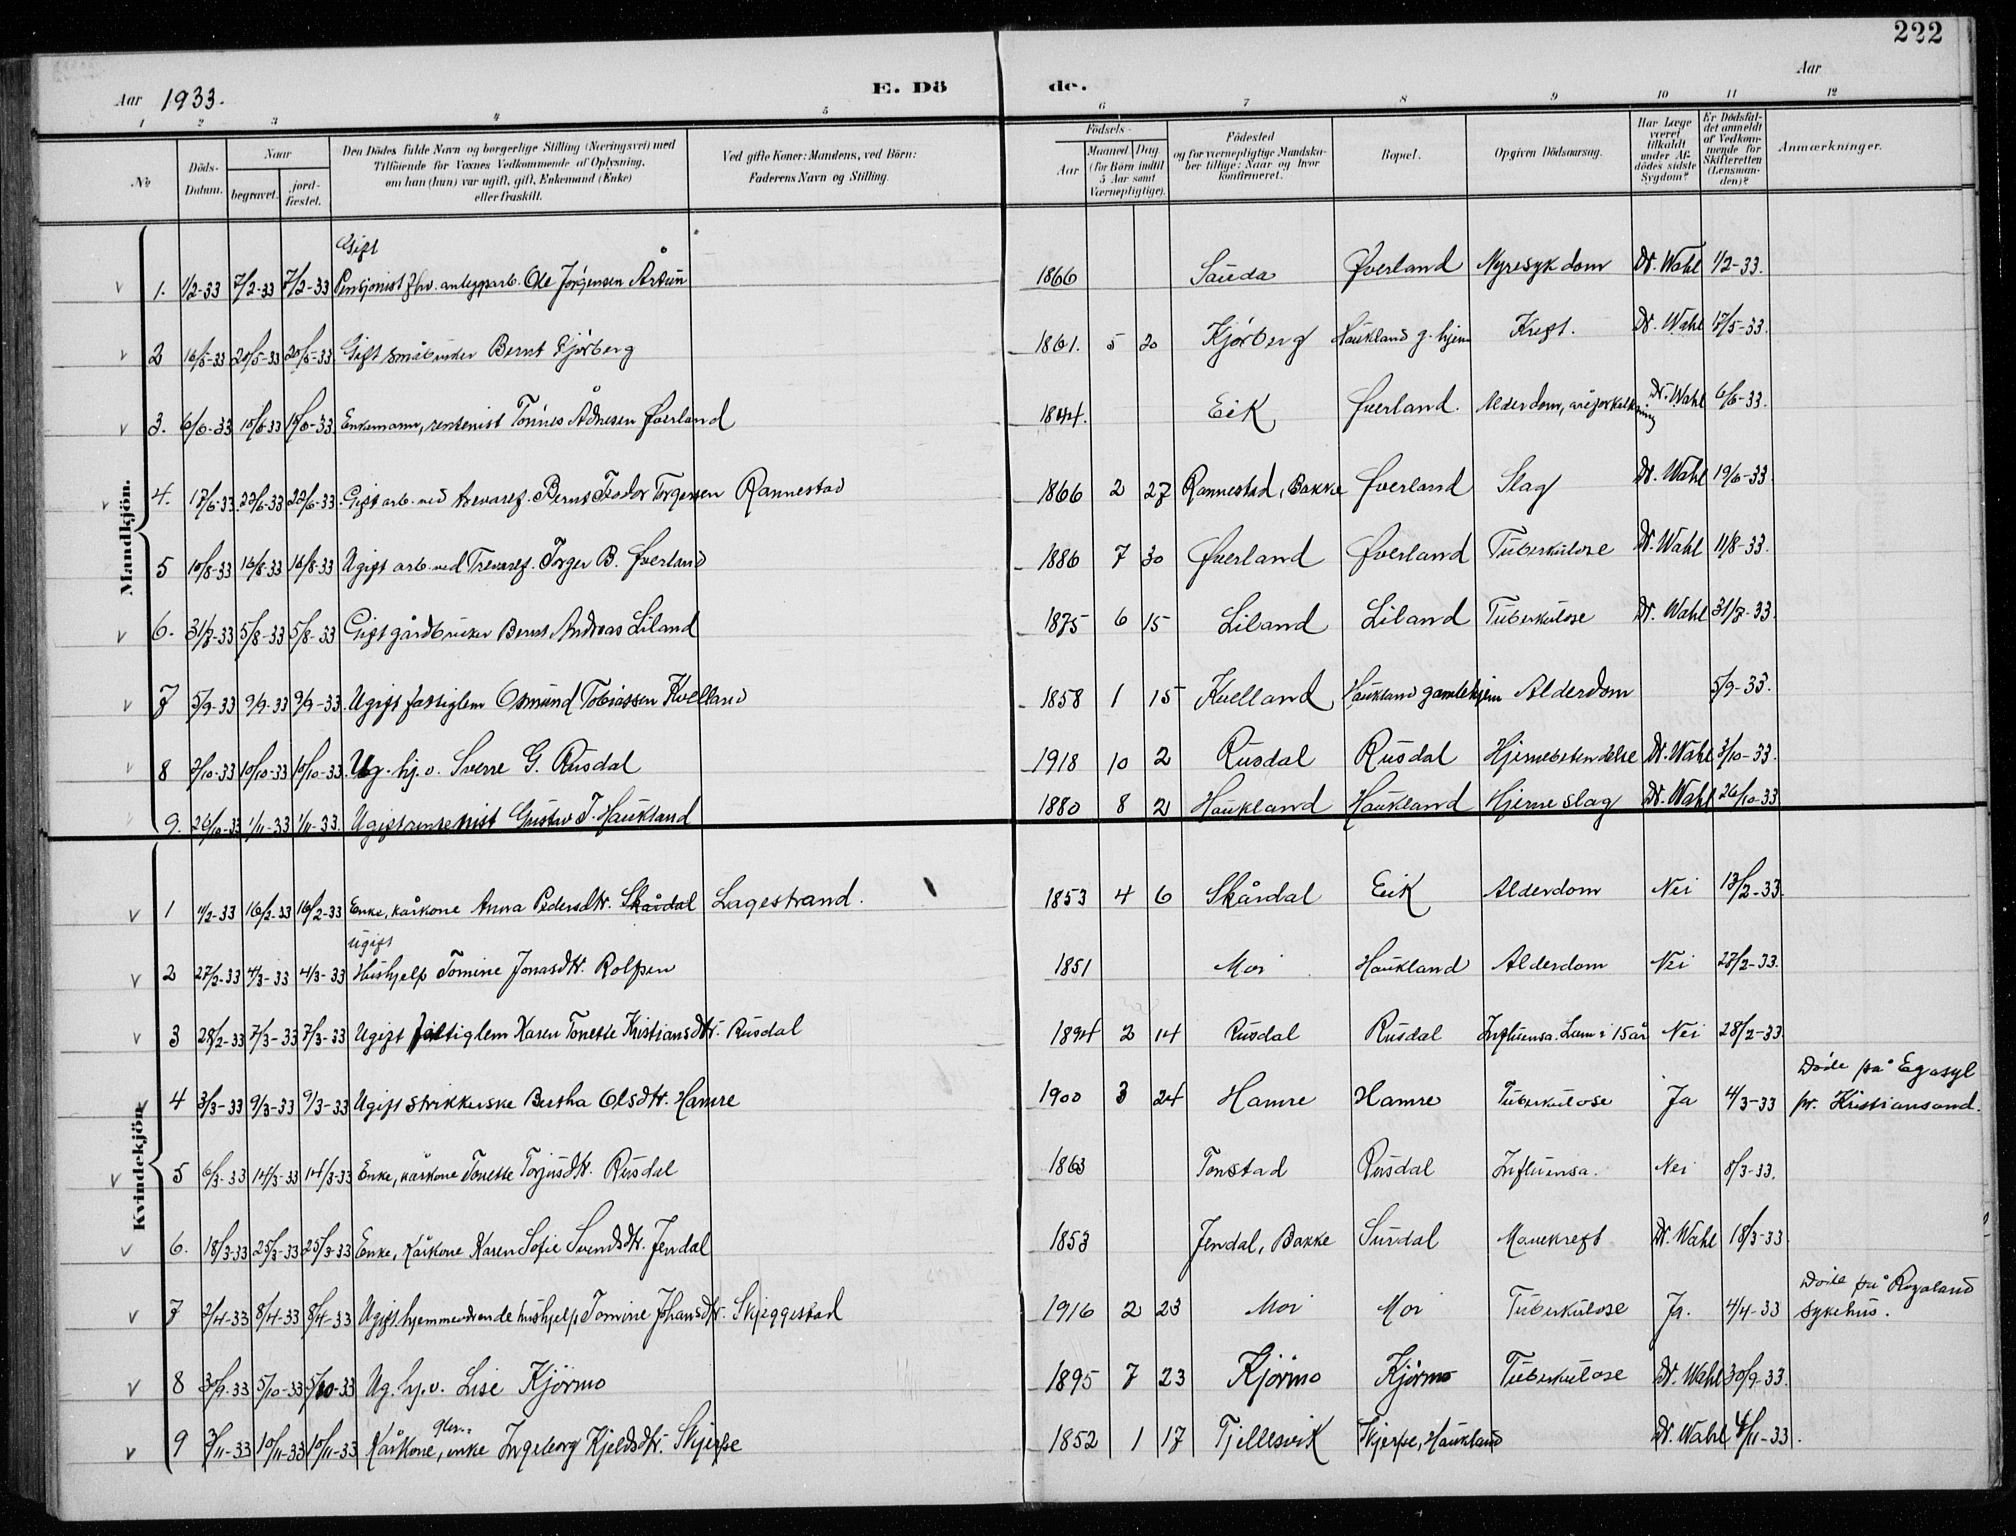 222
Aar 1933.
E. Dö de.
Aar
1 2 3 4 5 6 7 8 9 10 11 12
No
Döds-Datum.
Naar
begravet.
jord-fæstet.
Den Dödes fulde Navn og borgerlige Stilling (Næringsvei) med
Tilföiende for Voxnes Vedkommende af Oplysning,
om han (hun) var ugift, gift, Enkemand (Enke)
eller fraskilt.
Ved gifte Koner: Mandens, ved Börn:
Faderens Navn og Stilling.
Födsels-
Aar
Maaned Dag
(for Börn indtil 5 Aar samt Værnepligtige).
Födested
og for værnepligtige Mandska-
ber tillige: Naar og hvor
konfirmeret.
Bopæl.
Opgiven Dödsaarsag.
Har Læge været tilkaldt under Af-dödes sidste Sygdom?
Er Dödsfal-det anmeldt af Vedkom-mende for Skifteretten (Lensman-den)?
Anmærkninger.
Mandkjön.
Gift
1. 1/2-33 7/2-33 7/2-33 Pensjonist fhv. anleggsarb. Ole Jørgensen Årtun 1866 Sauda Øverland Nyresykdom Dr. Wahl 1/2-33.
2 16/5-33 20/5-33 20/5-33 Gift småbruker Bernt Kjørberg 1861. 5 20 Kjørberg Haukland g. hjem Kreft. Dr. Wahl 17/5-33.
3. 6/6-33 10/6-33 10/6-33 Enkemann, rentenist Tønnes Ådnesen Øverland 1844. Eik Øverland. Alderdom, åreforkalkning Dr. Wahl 6/6-33.
4. 17/6-33 22/6-33 22/6-33 Gift arb. ved trevaref. Bernt Teodor Torgersen Rannestad 1866 2 27 Rannestad, Bakke Øverland Slag Dr. Wahl 19/6-33.
5 10/8-33 16/8-33 16/8-33 Ugift arb. ved Trevaref. Torger B. Øverland 1886 7 30 Øverland Øverland Tuberkulose Dr. Wahl 11/8-33.
6. 31/7-33 5/8-33 5/8-33 Gift gårdbruker Bernt Andreas Liland 1875 6 15 Liland Liland Tuberkulose Dr. Wahl 31/7-33.
7 5/9-33 9/9-33 9/9-33. Ugift fattiglem Osmund Tobiassen Kvelland 1858 1 15 Kvelland Haukland gamlehjem Alderdom 5/9-33.
8 3/10-33 10/10-33 10/10-33. Ug. hj. v. Sverre G. Rusdal 1918 10 2 Rusdal Rusdal Hjernebetendelse Dr. Wahl 3/10-33.
9. 26/10-33 1/11-33 1/11-33. Ugift rentenist Gustav T. Haukland 1880 8 21 Haukland Haukland Hjerneslag Dr. Wahl 26/10-33
Kvindekjön.
1 11/2-33 16/2-33 16/2-33 Enke, kårkone Anna Pedersdtr. Skårdal Lagestrand. 1853 4 6 Skårdal Eik Alderdom Nei 13/2-33.
ugift
2 27/2-33 4/3-33 4/3-33 Hushjelp Tomine Jonasdtr. Rolfsen 1851 Moi Haukland Alderdom Nei 27/2-33.
3 28/2-33 7/3-33 7/3-33 Ugift fattiglem Karen Tonette Kristiansdtr. Rusdal 1894 2 14 Rusdal Rusdal Influensa. Lam i 15 år Nei 28/2-33.
4 3/3-33 9/3-33 9/3-33 Ugift strikkerske Bertha Olsdtr. Hamre 1900 3 24 Hamre Hamre Tuberkulose Ja 4/3-33 Døde på Eg asyl
pr. Kristiansand.
5 6/3-33 14/3-33 14/3-33 Enke, kårkone Tonette Torjusdtr. Rusdal 1863 Tonstad Rusdal Influensa. Nei 8/3-33.
6. 18/3-33 25/3-33 25/3-33 Enke, Kårkone Karen Sofie Svendsdtr. Jendal 1853 Jendal, Bakke Surdal Mavekreft Dr. Wahl 18/3-33
7 2/4-33 8/4-33 8/4-33 Ugift hjemmeværende hushjelp Tomine Johansdtr. Skjeggestad 1916 2 23 Moi Moi Tuberkulose Ja. 4/4-33 Døde på Rogaland
sykehus.
8 30/9-33 5/10-33 5/10-33 Ug. hj. v. Lise Kjørmo 1895 7 23 Kjørmo Kjørmo Tuberkulose Dr. Wahl 30/9-33.
9 3/11-33 10/11-33 10/11-33 Kårkone, enke Ingeborg Kjeldsdtr. Skjerpe 1852 1 17 Tjellesvik Skjerpe, Haukland Dr. Wahl 4/11-33.